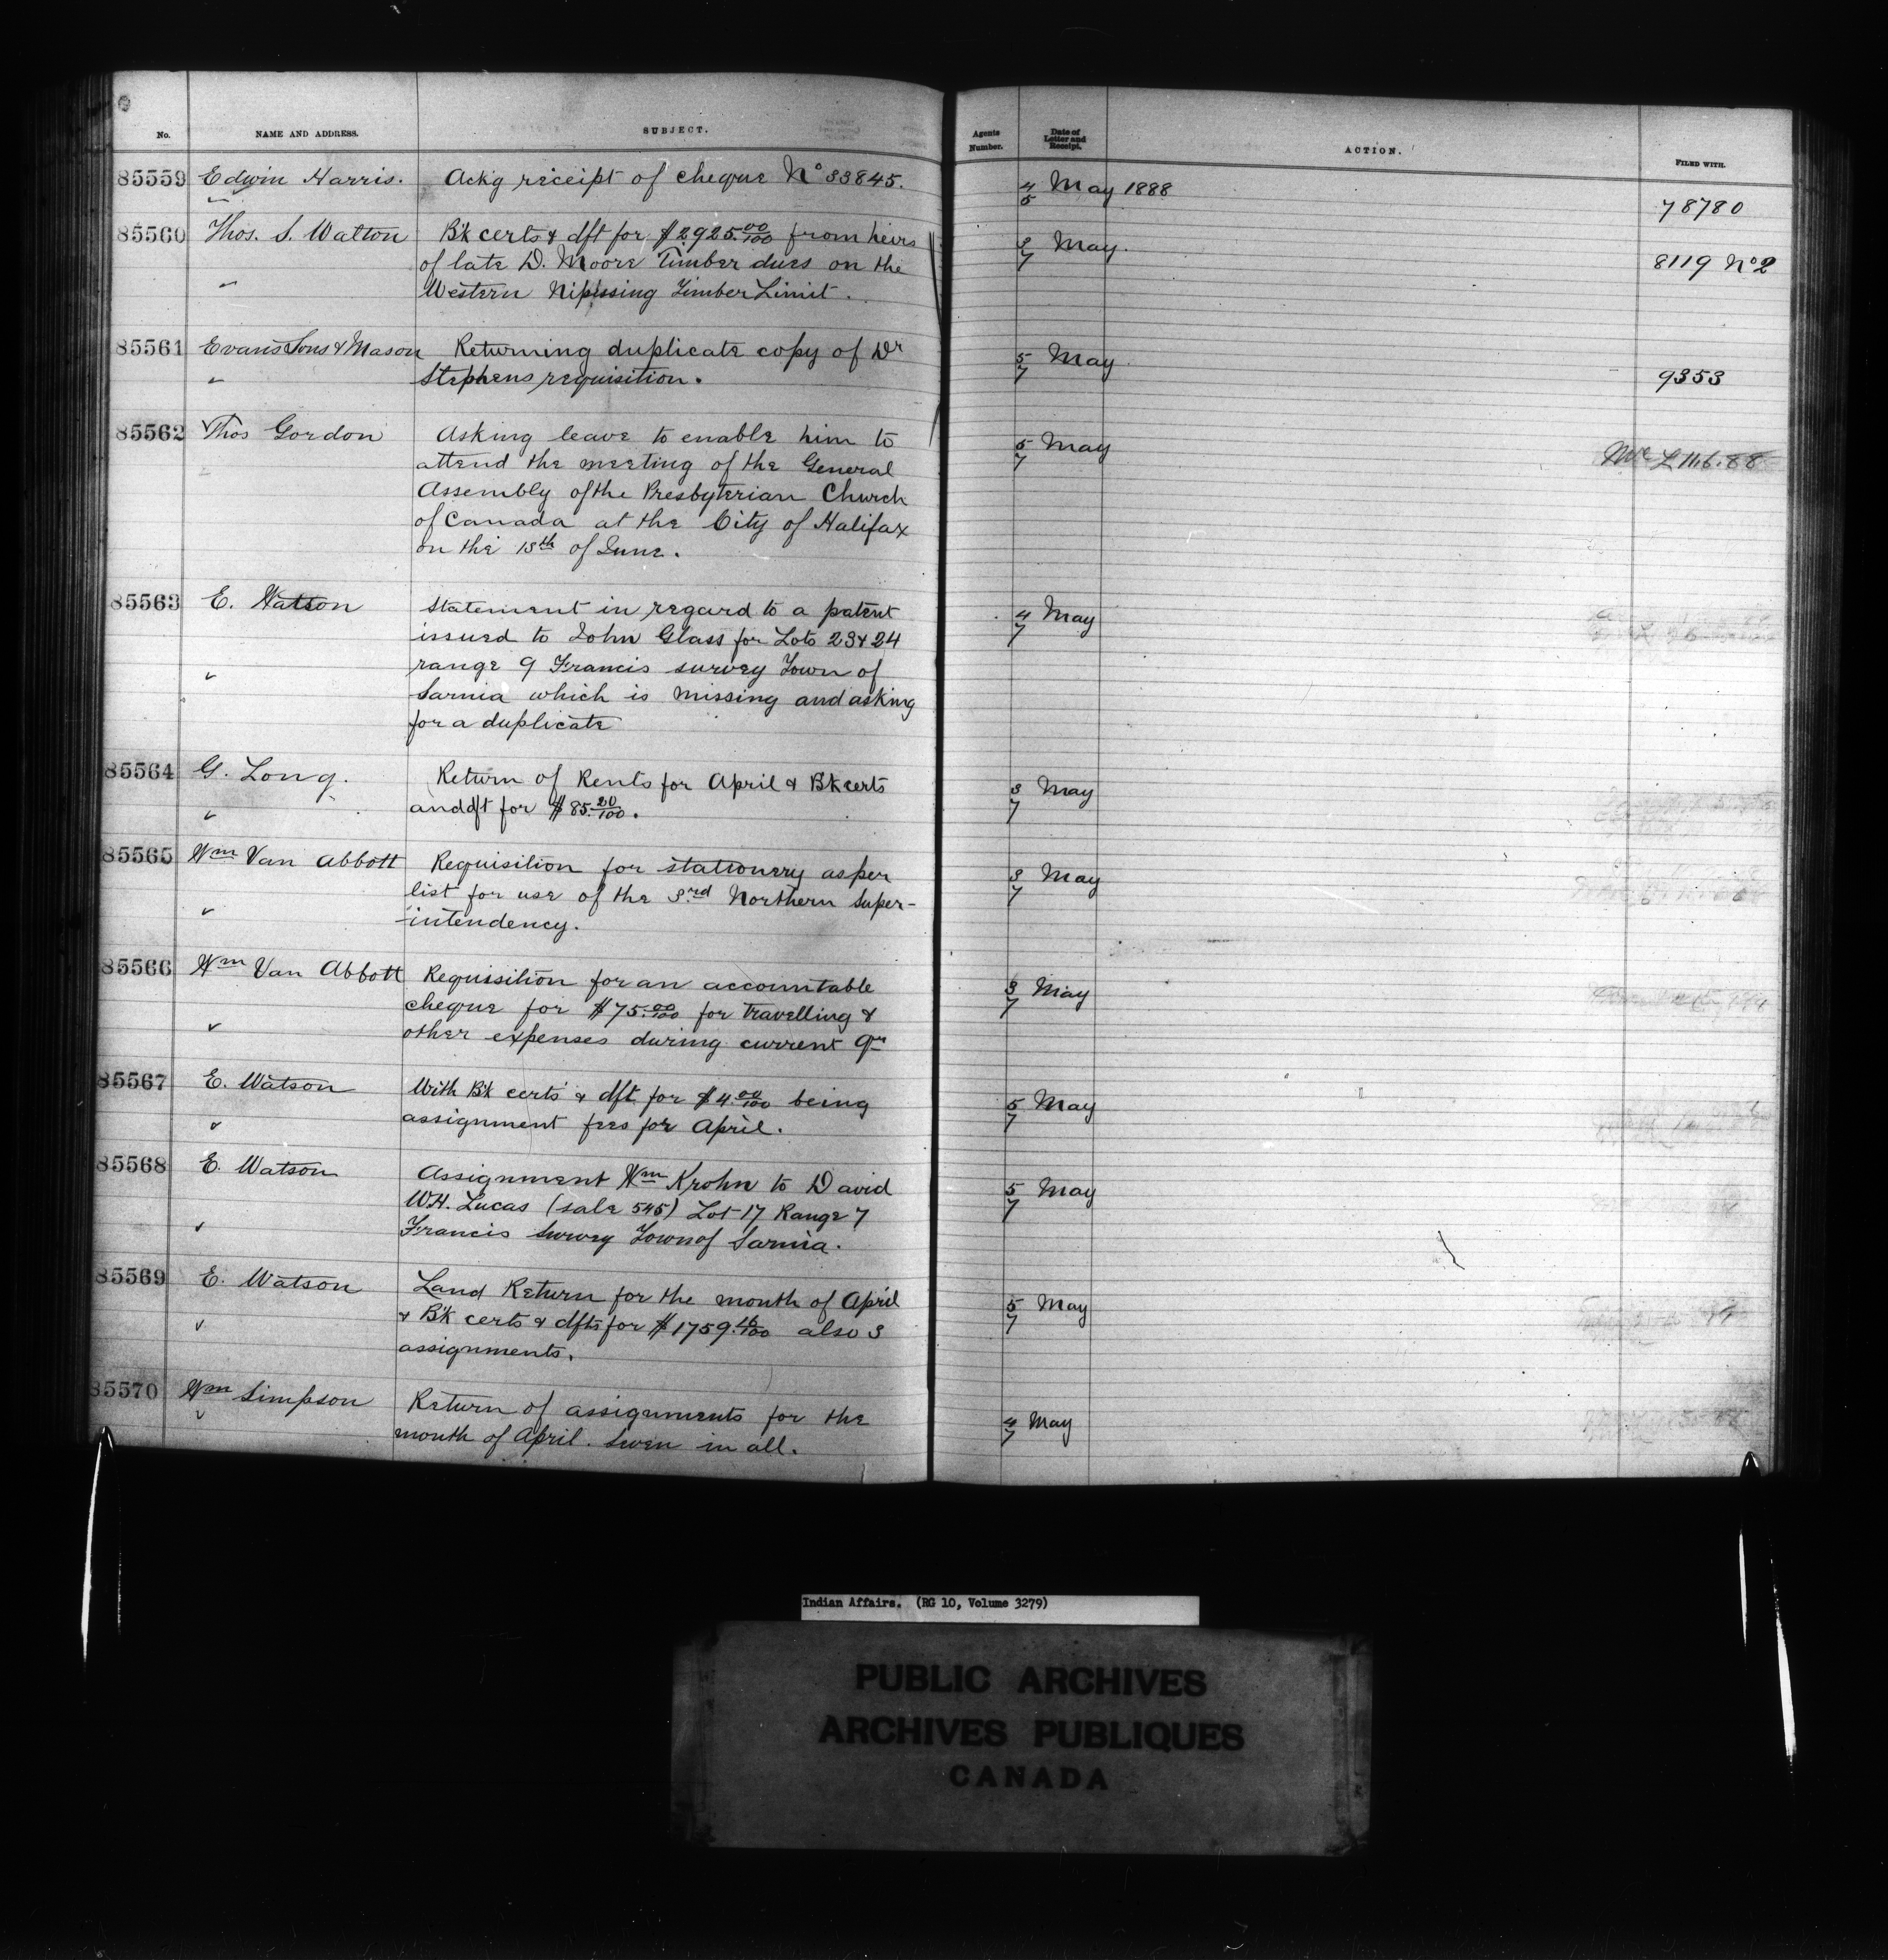 No. NAME AND ADDRESS. SUBJECT. Agents Number. Date of Letter and Receipt. ACTION. FILED WITH.
85559 Edwin Harris. Ackg receipt of cheque No 33845. 4/5 May 1888 78780
85560 Thos. S. Walton Bk certs & dft for $2925.00/100 from heirs 3/7 May. 8119 No 2
of late D. Moore Timber dues on the
Western Nipissing Timber Limit.
85561 Evans Sons & Mason Returning duplicate copy of Dr 5/7 May 9353
Stephens requisition.
85562 Thos Gordon Asking leave to enable him to 5/7 May
attend the meeting of the General
Assembly of the Presbyterian Church
of Canada at the City of Halifax
on the 13th of June.
85563 E. Watson Statement in regard to a patent 4/7 May
issued to John Glass for Lots 23 & 24
range 9 Francis survey Town of
Sarnia which is missing and asking
for a duplicate
85564 G. Long. Return of Rents for April & Bk certs 3/7 May
and dft for $85.20/100.
85565 Wm Van Abbott Requisition for stationery as per 3/7 May
list for use of the 3rd Northern Super-
intendency.
85566 Wm Van Abbott Requisition for an accountable 3/7 May
cheque for $75.00/100 for travelling &
other expenses during current qr
85567 E. Watson With Bk certs & dft for $4.00/100 being 5/7 May
assignment fees for April.
85568 E. Watson Assignment Wm Krohn to David 5/7 May
W.H. Lucas (sale 545) Lot 17 Range 7
Francis Survey Town of Sarnia.
85569 E. Watson Land Return for the month of April 5/7 May
& Bk certs & dfts for $1759. also 3
assignments.
85570 Wm Simpson Return of assignments for the 4/7 May
month of April. Seven in all.
Indian Affairs. (RG 10, Volume 3279)
PUBLIC ARCHIVES
ARCHIVES PUBLIQUES
CANADA